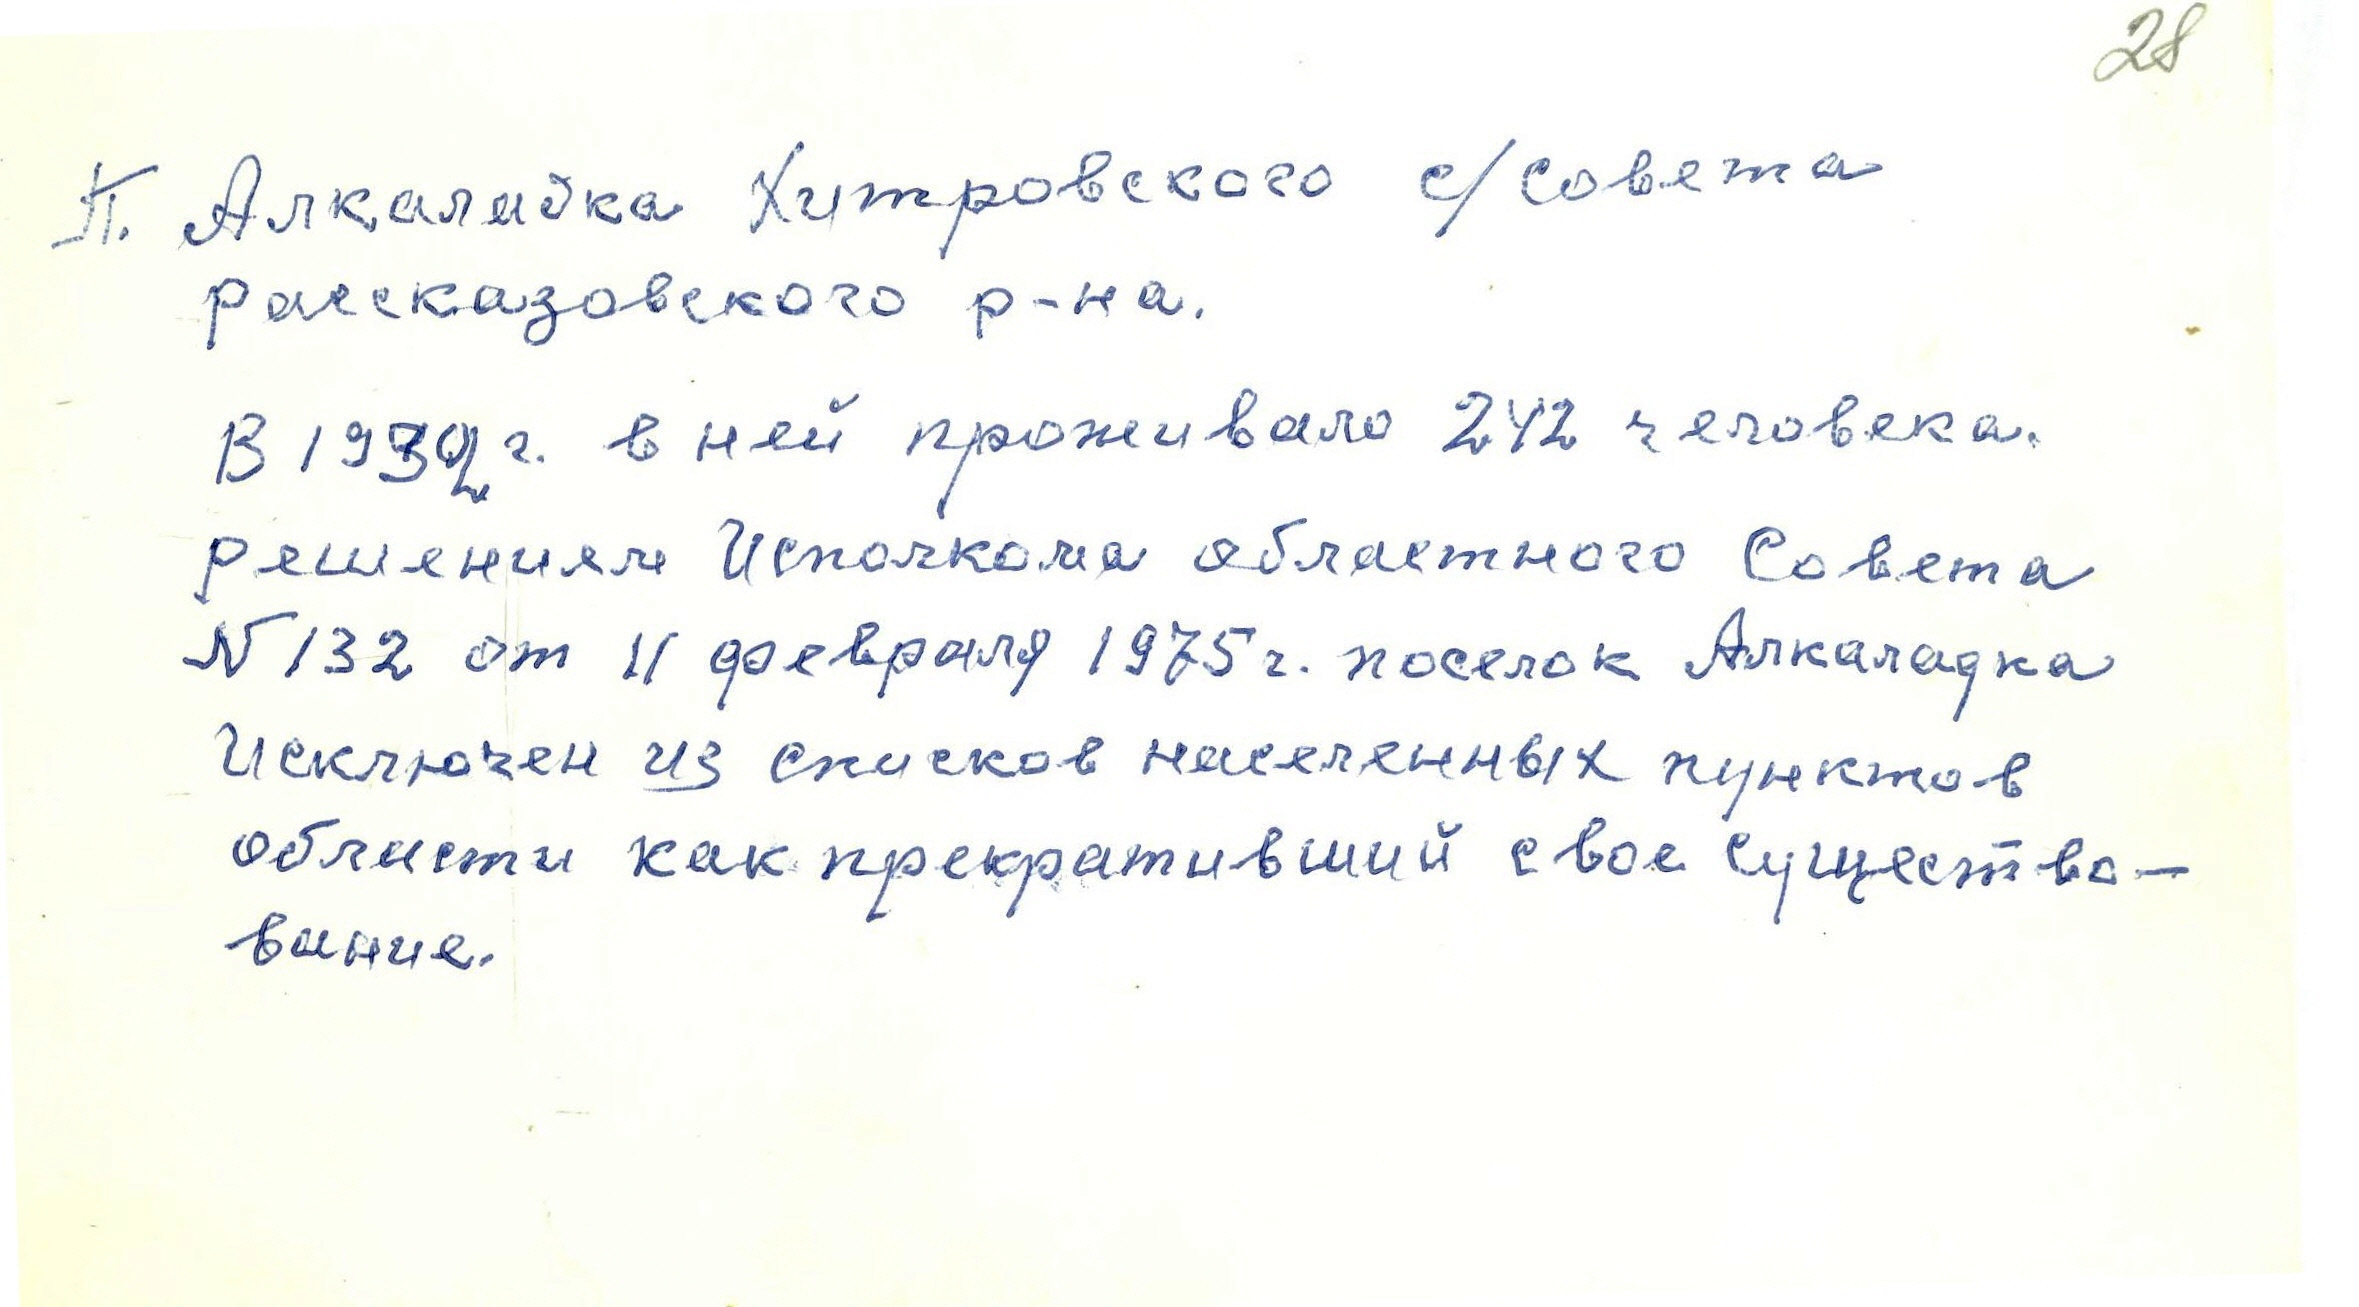 28
П. Алкаладка Хитровского с/совета
рассказовского р-на.
В 1932 г. в ней проживало 242 человека.
решением Исполкома областного Совета
N 132 от 11 февраля 1975 г. поселок Алкаладка
Исключен из списков населенных пунктов
области как прекративший свое существо-
вание.